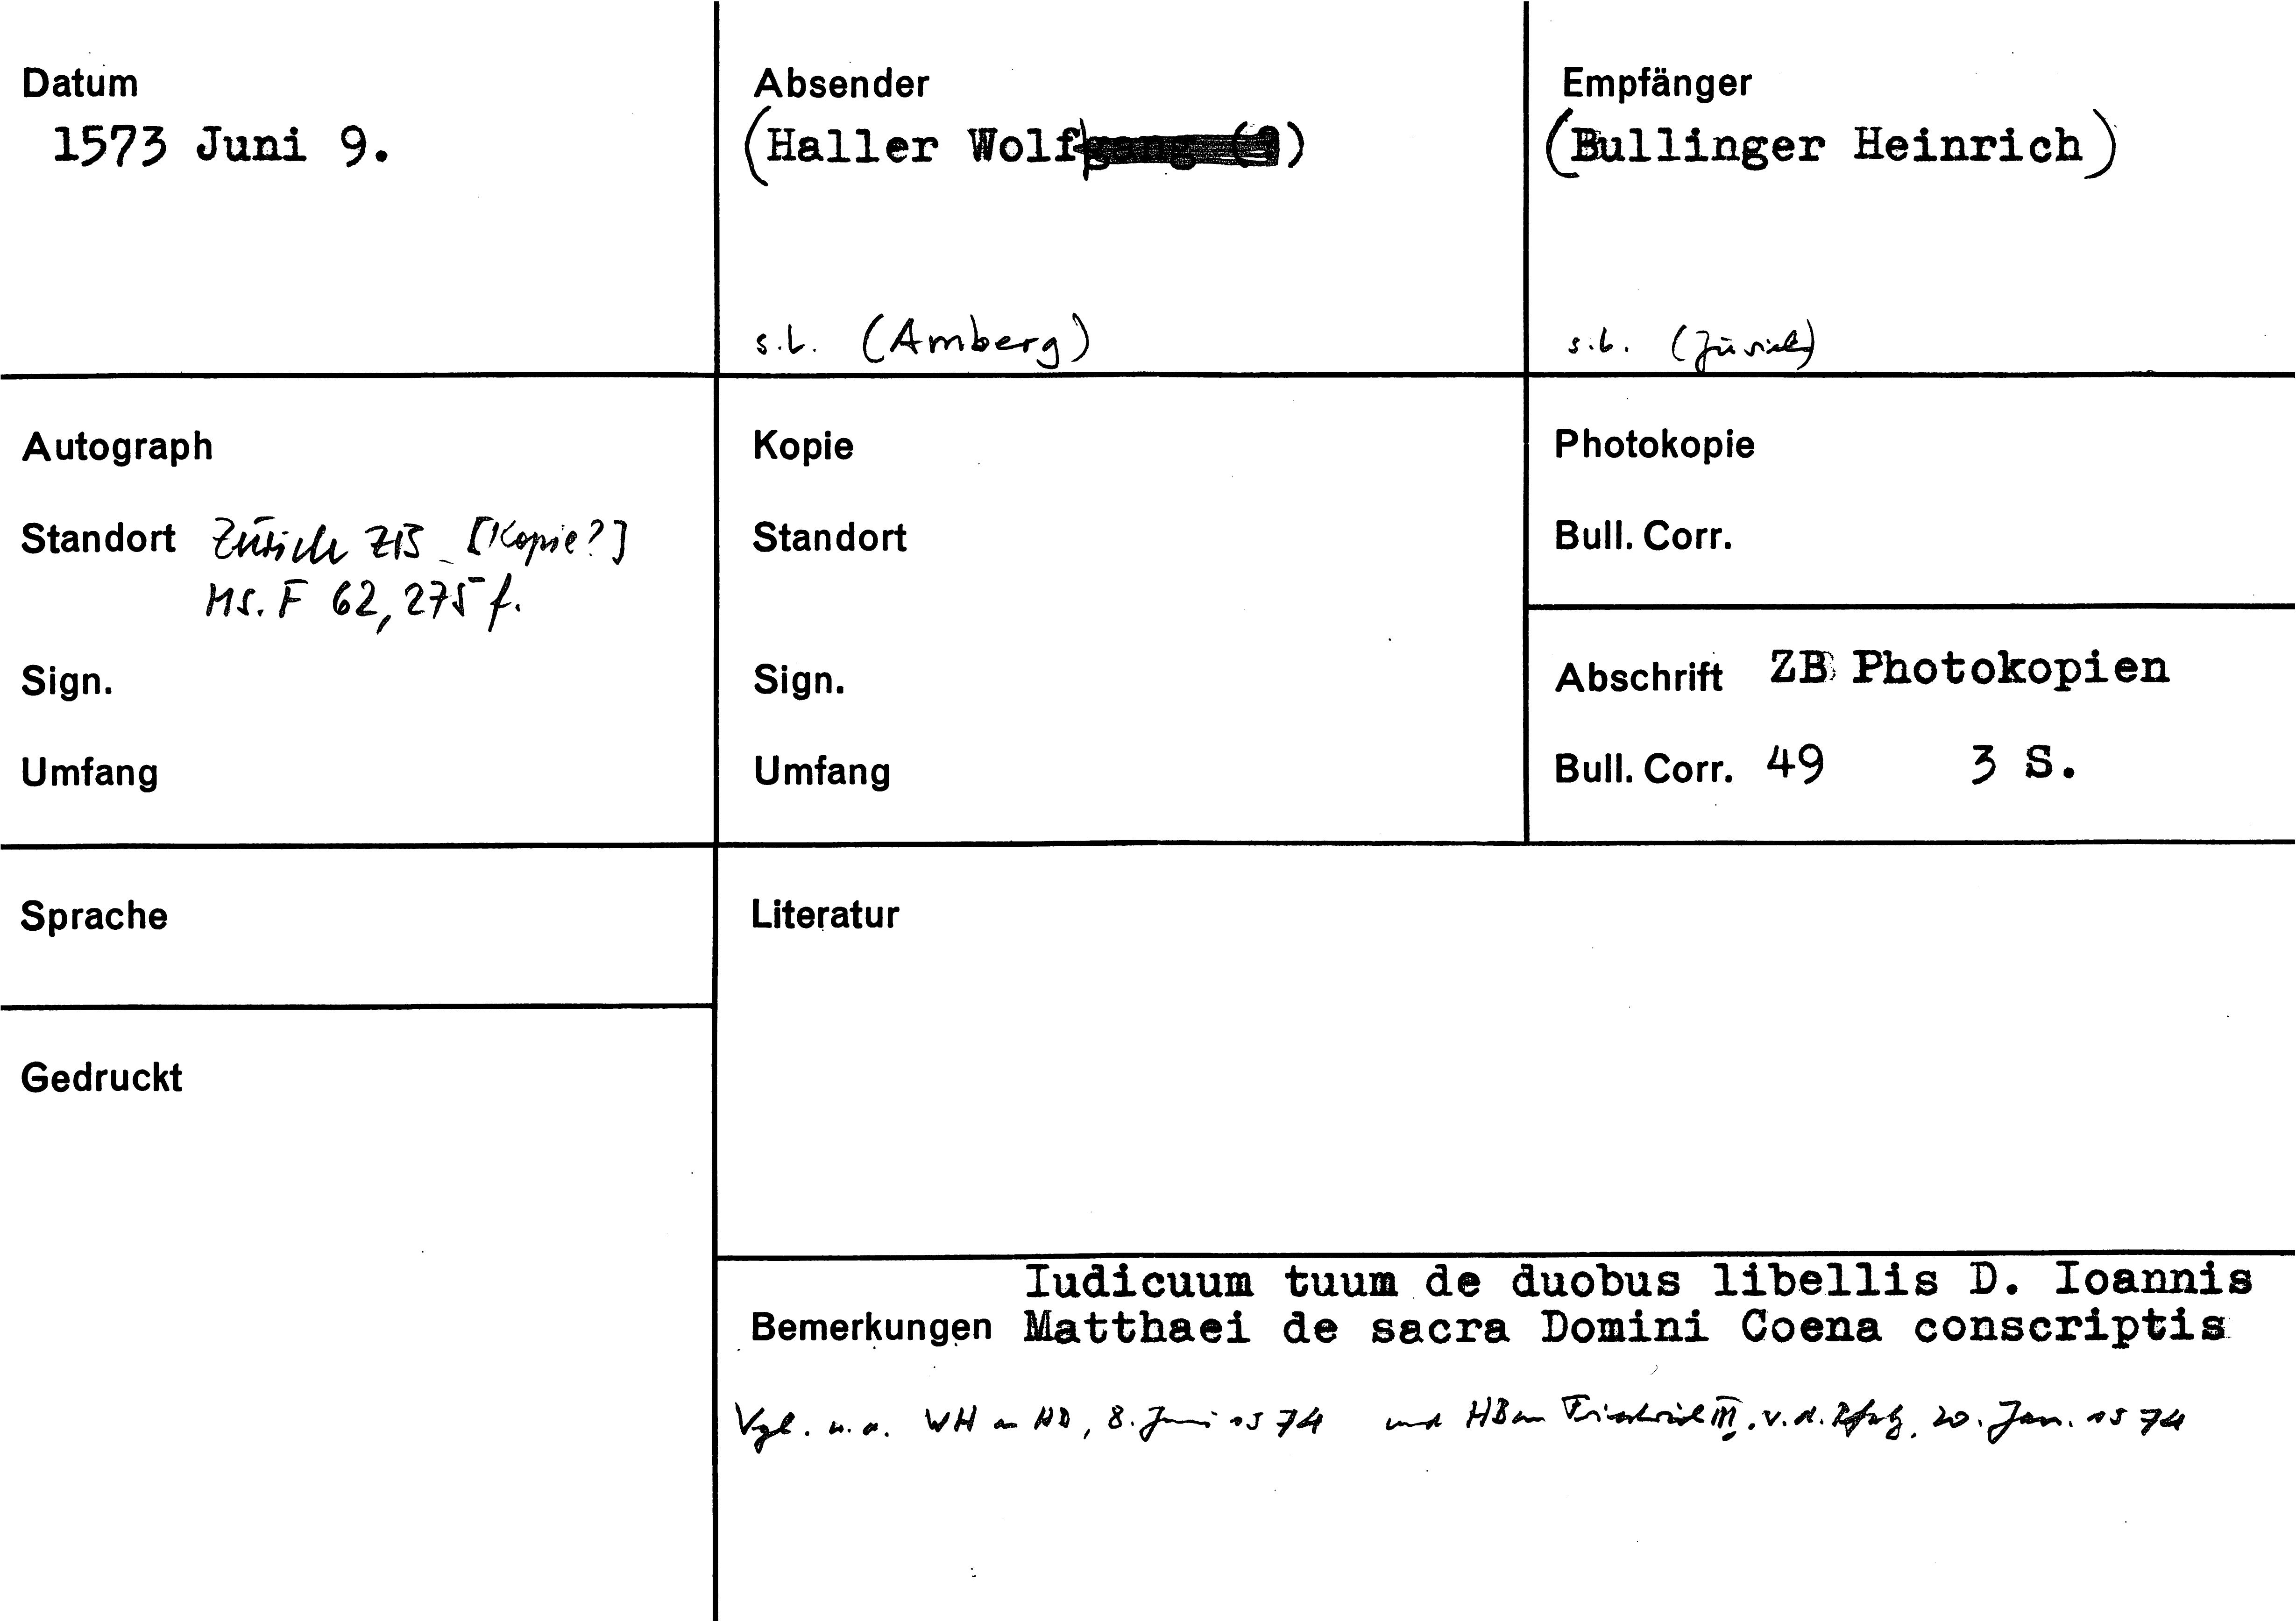 Datum
1573 Juni 9.
Absender
(Haller Wolf)
s.l. (Amberg)
Empfänger
(Bullinger Heinrich)
s.l. (Zürich)
Autograph
Standort Zürich ZB [Kopie?]
Ms. F 62, 275 f.
Sign.
Umfang
Kopie
Standort
Sign.
Umfang
Photokopie
Bull. Corr.
Abschrift ZB Photokopien
Bull. Corr. 49 3 S.
Sprache
Literatur
Gedruckt
Iudicuum tuum de duobus libellis D. Ioannis
Bemerkungen Matthaei de sacra Domini Coena conscriptis
Vgl. u.a. WH an HB, 8. Juni 1574 und HB an Friedrich III. v.d. Pfalz, 20. Jan. 1574